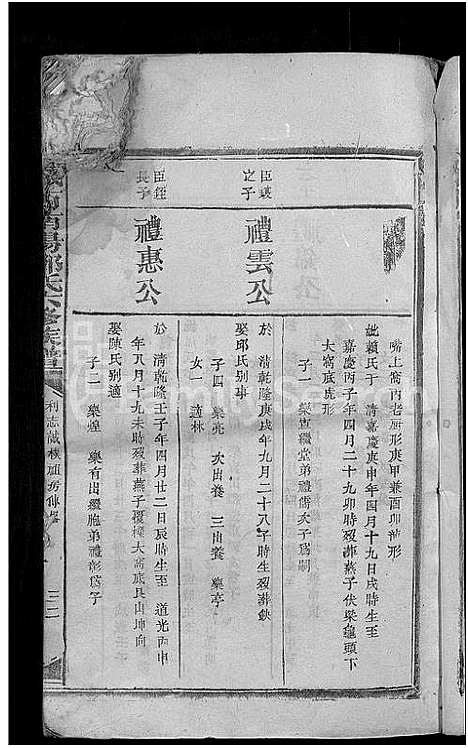 嘴上窩內老厨形庚甲兼酉卯訥形
妣賴氏于　清嘉慶庚申年四月十九日戌時生至
嘉慶丙子年四月二十九卯時歿葬燕子伏樑龜頭下
大窩底虎形
子一　樂直繼堂弟禮儒次子爲嗣
臣
之子
禮雲公
於　清乾隆庚戌年九月二十八子時生歿葬鈌
娶邱氏别事
子四　樂兆　次出養　三出養　樂亭
女一　適林
臣
長子
禮惠公
於　清乾隆壬子年四月廿二日辰時生至　道光丙申
年八月十九未時歿葬燕子覆樑大窩底艮山坤向
娶陳氏别適
子二　樂煌　樂有出繼胞弟禮彰爲子
南陽鄧氏六修族譜